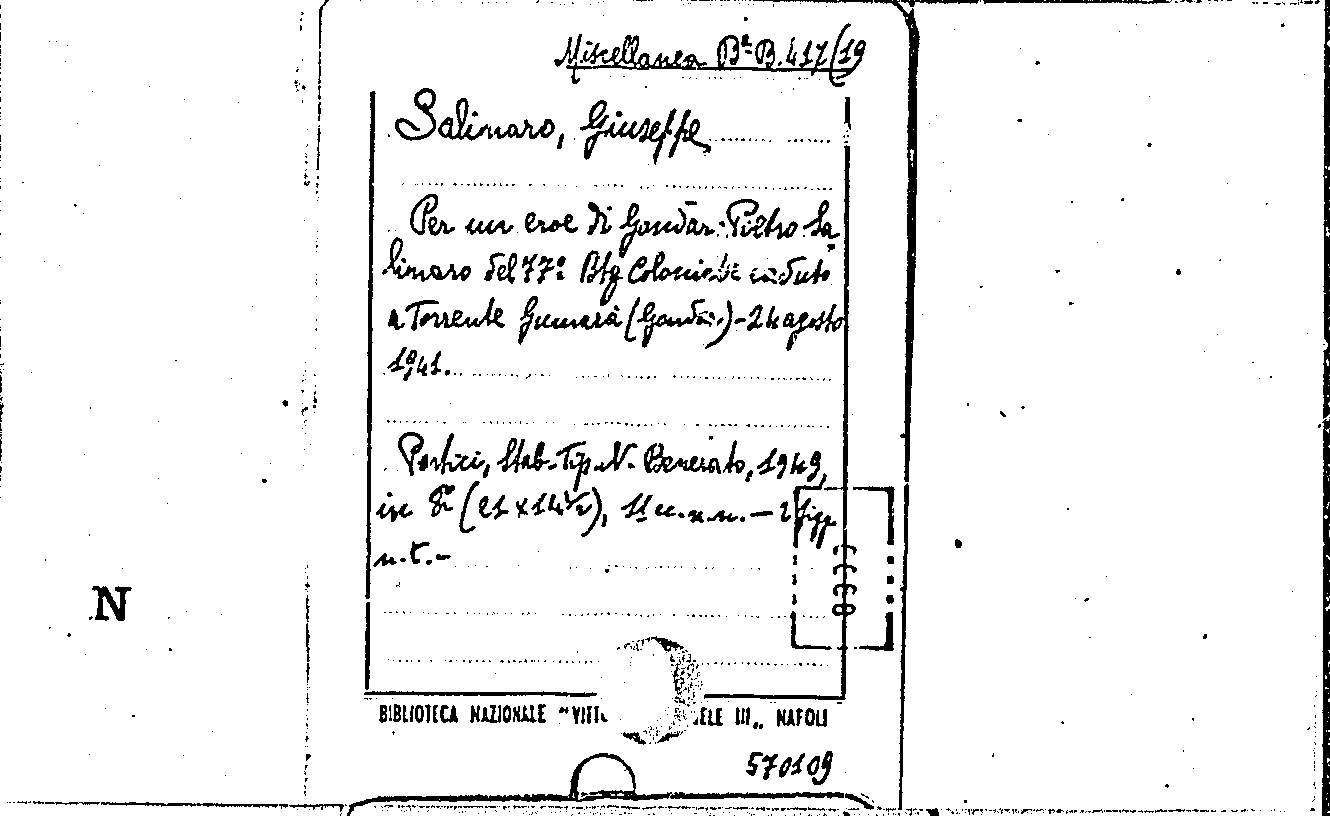 Miscellanea Bª B. 417/(19
Salimaro, Giuseppe
Per un eroe di Gondar: Pietro Sa
limaro del 77º Btg Coloniale caduto
a Torrente Gumarà (Gondar) - 24 agosto
1941.
Portici, Stab. Tip. N. Benerato, 1949,
in 8º (21 x 14½), 11 cc. n. n. — 2 figg.
n. t. -
N
BIBLIOTECA NAZIONALE "VITT ELE III„ NAPOLI
570109